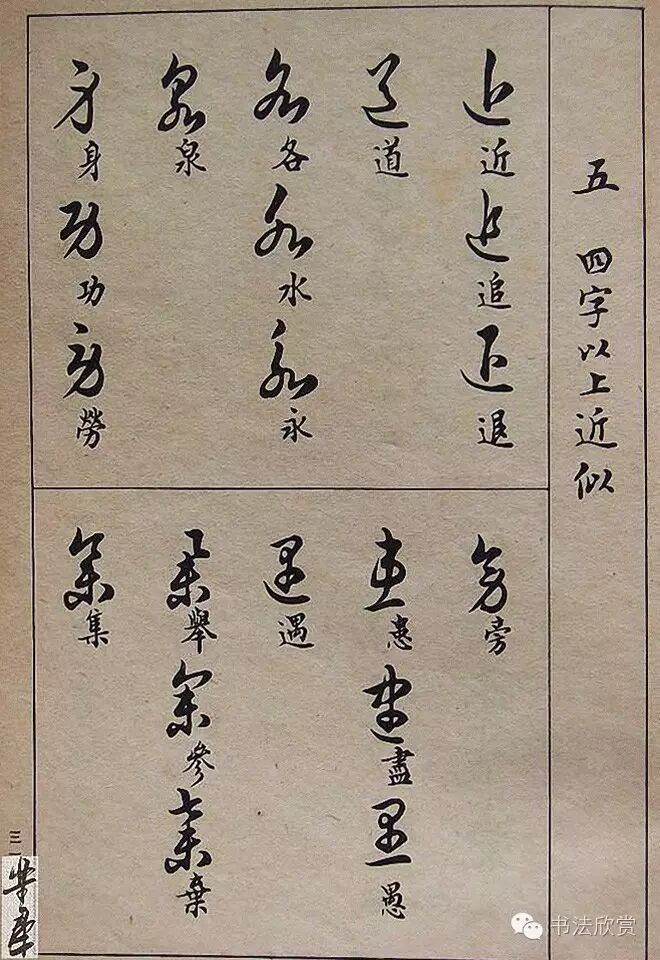 五 四字以上近似
近 追 退
道
各 水 永
泉
身 功 勞
旁
患 盡 愚
遇
舉 參 棄
集
三一
书法欣赏